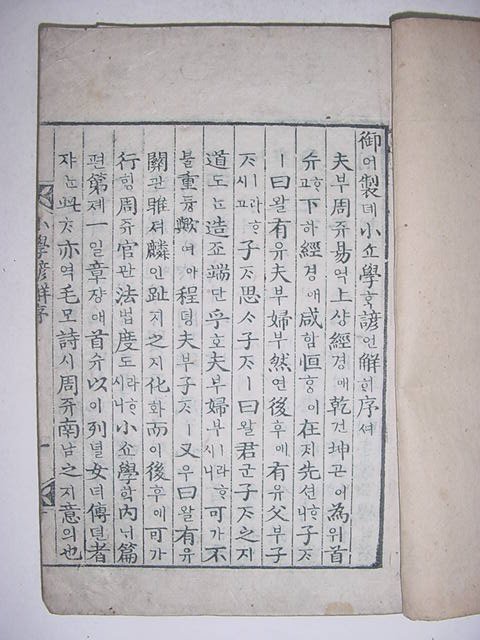 御어製뎨小쇼學ᄒᆞᆨ諺언解ᄒᆡ序셔
夫부周쥬易역上샹經경애乾건坤곤이為위首
슈ᄒᆞ고下하經경애咸함恒ᄒᆞᆼ이在ᄌᆡ先션ᄒᆞ니子ᄌᆞ
ㅣ曰왈有유夫부婦부然연後후에有유父부子
ᄌᆞㅣ라ᄒᆞ시고子ᄌᆞ思ᄉᆞ子ᄌᆞㅣ曰왈君군子ᄌᆞ之지
道도ᄂᆞᆫ造조端단乎호夫부婦부ㅣ라ᄒᆞ시니可가不
블重듕歟여아程뎡夫부子ᄌᆞㅣ又우曰왈有유
關관雎져麟인趾지之지化화而이後후에可가
行ᄒᆡᆼ周쥬官관法법度도ㅣ라ᄒᆞ시니小쇼學학內ᄂᆡ篇
편第뎨一일章쟝애首슈以이列녈女녀傳뎐者
쟈ᄂᆞᆫ此ᄎᆞ亦역毛모詩시周쥬南남之지意의也
小學諺解序 一